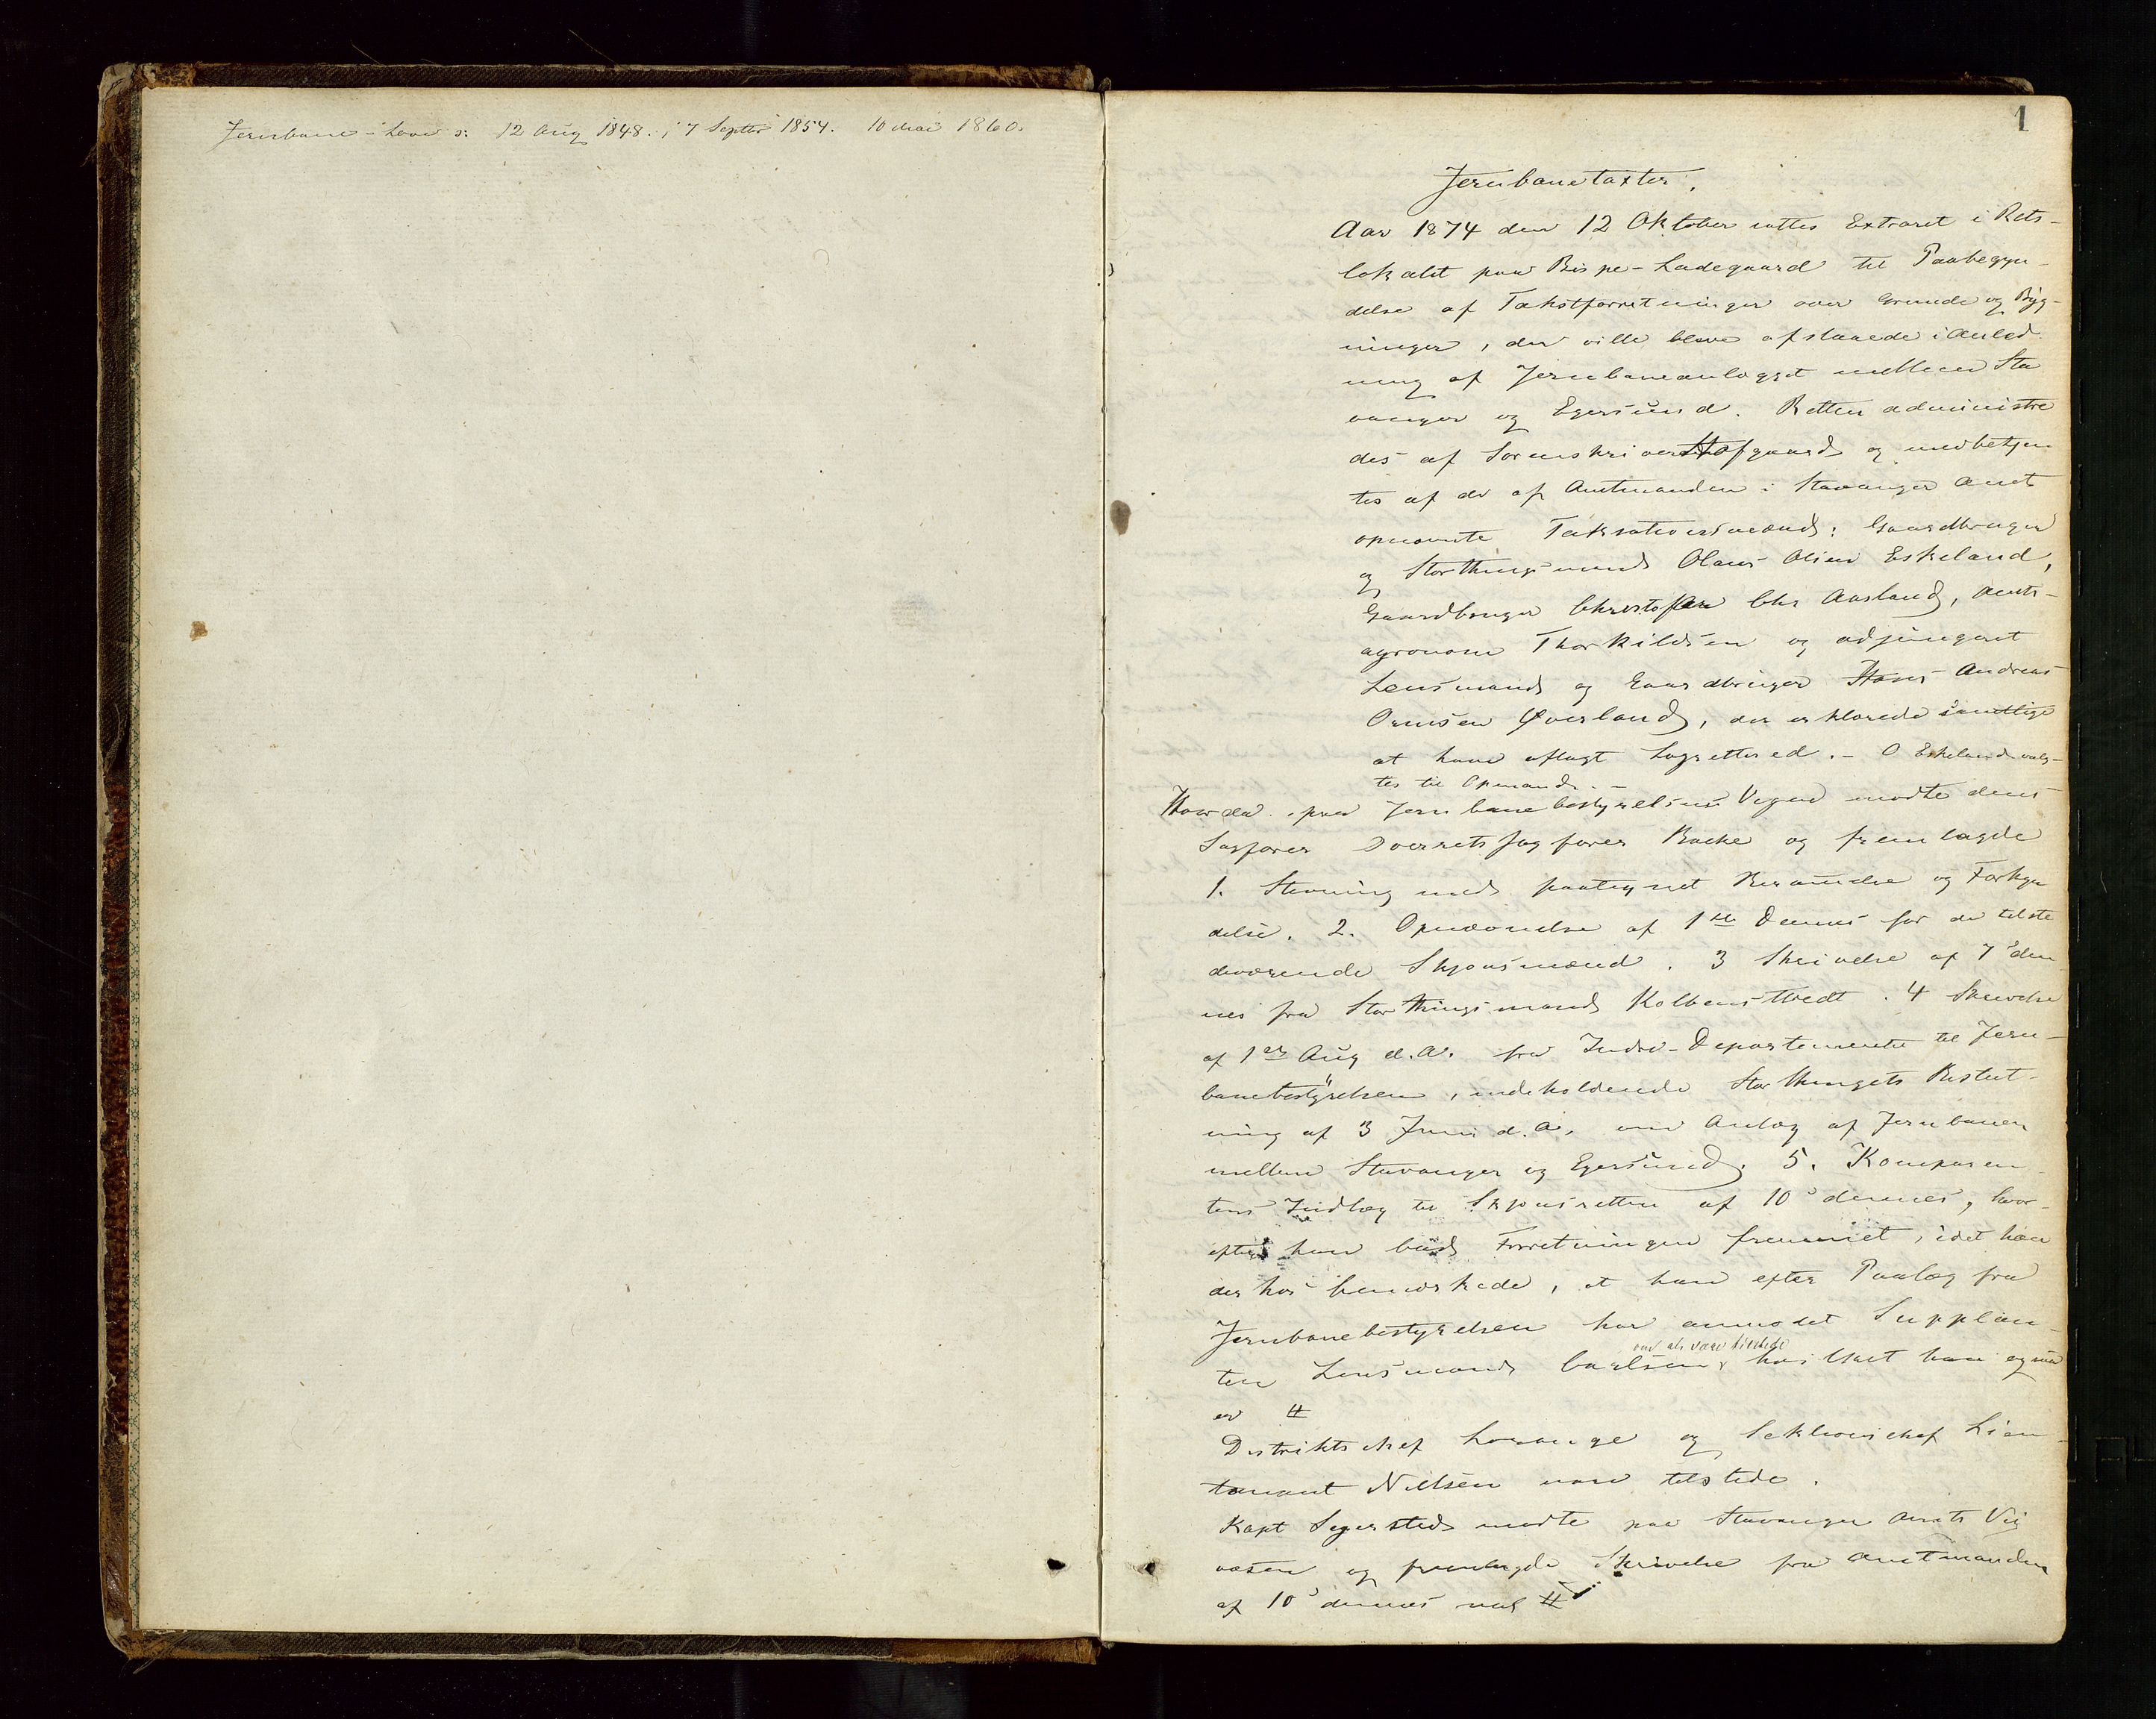 Jernbane-Love s: 12 Aug 1848. ; 7 Septbr 1854. 10 Mai 1860.
1
Jernbanetaxter.
Aar 1874 den 12 Oktober sattes Extraret i Rets-
lokalet paa Bispe-Ladegaard til Paabegyn-
delse af Takstforretninger over Grunde og Byg-
ninger, der ville blive afstaaede i Anled-
ning af Jernbaneanlægget mellem Sta
vanger og Egersund. Retten administre
des af Sorenskriver Hofgaard og medbetjen-
tes af de af Amtmanden i Stavanger Amt
opnævnte Taksationsmænd: Gaardbruger
og Storthingsmand Olaus Olsen Eskeland,
Gaardbruger Christofer Chr Aasland, Amts-
agronom Thorkildsen og adjungeret
Lensmand og Gaardbruger Hans Andreas
Omsen Øverland, der erklærede samtlige
at have aflagt Lagretteed. - O Eskeland valg-
tes til Opmand. -
Hvorda paa Jernbanebestyrelsens Vegne mødte dens
Sagfører Overretssagfører Bache og fremlagde
1. Stevning med paategnet Berammelse og Forkyn
delse. 2. Opnævnelse af 1ste Dennes for de tilste
deværende Skjønsmænd. 3 Skrivelse af 7de den
nes fra Storthingsmand Kolbenstvedt. 4 Skrivelse
af 1ste Aug d.A. fra Indre-Departementet til Jern-
banebestyrelsen, indeholdende Storthingets Beslut-
ning af 3 Juni d.A. om Anlæg af Jernbanen
mellem Stavanger og Egersund. 5. Komparen
tens Indlæg til Skjønsretten af 10de dennes, hvor-
efter han bad Forretningen fremmet, idet han
derhos bemærkede, at han efter Paalæg fra
Jernbanebestyrelsen har anmodet Supplean-
om at være tilstede
ten Lensmand Carlsen, hvilket han ogsaa
er #
Distriktschef Lorange og Sektionschef Lieu-
tenant Nielsen vare tilstede.
Kapt Segersted mødte paa Stavanger Amts Vei
væsen og fremlagde Skrivelse fra Amtmanden
af 10de dennes